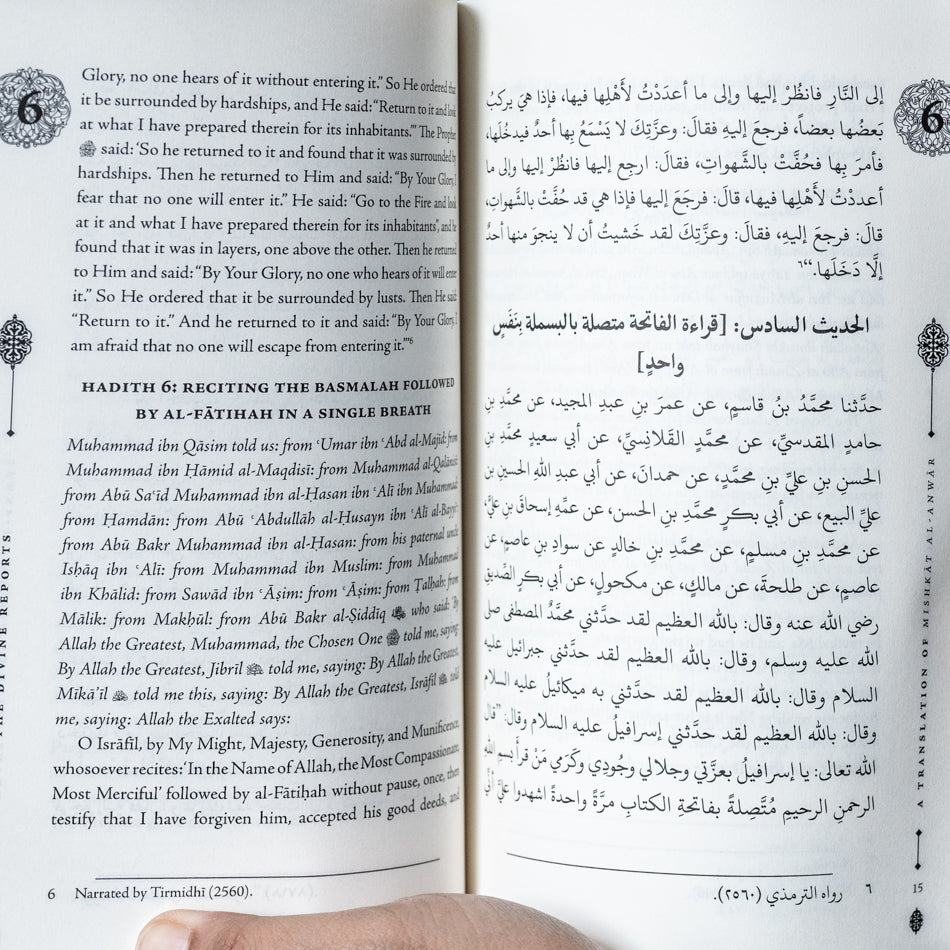 6
Glory, no one hears of it without entering it.” So He ordered that
it be surrounded by hardships, and He said: “Return to it and look
at what I have prepared therein for its inhabitants.”’ The Prophet
ﷺ said: ‘So he returned to it and found that it was surrounded by
hardships. Then he returned to Him and said: “By Your Glory, I
fear that no one will enter it.” He said: “Go to the Fire and look
at it and what I have prepared therein for its inhabitants”, and he
found that it was in layers, one above the other. Then he returned
to Him and said: “By Your Glory, no one who hears of it will enter
it.” So He ordered that it be surrounded by lusts. Then He said:
“Return to it.” And he returned to it and said: “By Your Glory, I
am afraid that no one will escape from entering it.”’6
HADITH 6: RECITING THE BASMALAH FOLLOWED
BY AL-FĀTIHAH IN A SINGLE BREATH
Muhammad ibn Qāsim told us: from ʿUmar ibn ʿAbd al-Majīd: from
Muhammad ibn Ḥāmid al-Maqdisī: from Muhammad al-Qalānisī:
from Abū Saʿīd Muhammad ibn al-Ḥasan ibn ʿAlī ibn Muhammad:
from Ḥamdān: from Abū ʿAbdullāh al-Ḥusayn ibn ʿAlī al-Bayyiʿ:
from Abū Bakr Muhammad ibn al-Ḥasan: from his paternal uncle
Isḥāq ibn ʿAlī: from Muhammad ibn Muslim: from Muhammad
ibn Khālid: from Sawād ibn ʿĀṣim: from ʿĀṣim: from Ṭalḥah: from
Mālik: from Makḥūl: from Abū Bakr al-Ṣiddīq who said: ‘By
Allah the Greatest, Muhammad, the Chosen One ﷺ told me, saying:
By Allah the Greatest, Jibrīl told me, saying: By Allah the Greatest,
Mīkāʾīl told me this, saying: By Allah the Greatest, Isrāfīl told
me, saying: Allah the Exalted says:
O Isrāfīl, by My Might, Majesty, Generosity, and Munificence,
whosoever recites: ‘In the Name of Allah, the Most Compassionate,
Most Merciful’ followed by al-Fātiḥah without pause, once, then
testify that I have forgiven him, accepted his good deeds, and
6 Narrated by Tirmidhī (2560).
THE DIVINE REPORTS
6
إلى النَّارِ فانظُرْ إليها وإلى ما أعدَدْتُ لأَهْلِها فيها، فإذا هيَ يركبُ
بَعضُها بعضاً، فرجعَ إليهِ فقالَ: وعزَّتِكَ لا يَسْمَعُ بِها أحدٌ فيدخُلَها،
فأمرَ بِها فحُفَّتْ بالشَّهواتِ، فقالَ: ارجِع إليها فانظُر إليها وإلى ما
أعددْتُ لأَهْلِها فيها، قالَ: فرجَعَ إليها فإذا هي قد حُفَّتْ بالشَّهواتِ،
قالَ: فرجعَ إليهِ، فقالَ: وعزَّتِكَ لقد خَشيتُ أن لا ينجوَ منها أحدٌ
إلَّا دَخَلَها.“٦
الحديث السادس: [قراءة الفاتحة متصلة بالبسملة بنَفَسٍ
واحدٍ]
حدَّثنا محمَّدُ بنُ قاسمٍ، عن عمرَ بنِ عبدِ المجيد، عن محمَّدِ بنِ
حامدٍ المقدسيِّ، عن محمَّدٍ القَلانِسيِّ، عن أبي سعيدٍ محمَّدِ بنِ
الحسنِ بنِ عليِّ بنِ محمَّدٍ، عن حمدانَ، عن أبي عبدِ اللهِ الحسينِ بنِ
عليِّ البيع، عن أبي بكرٍ محمَّدِ بنِ الحسن، عن عمِّهِ إسحاقَ بنِ عليٍّ،
عن محمَّدِ بنِ مسلمٍ، عن محمَّدِ بنِ خالدٍ عن سوادِ بنِ عاصمٍ، عن
عاصمٍ، عن طلحةَ، عن مالكٍ، عن مكحولٍ، عن أبي بكرٍ الصِّديقِ
رضي الله عنه وقال: بالله العظيم لقد حدَّثني محمَّدٌ المصطفى صلى
الله عليه وسلم، وقال: بالله العظيم لقد حدَّثني جبرائيل عليه
السلام وقال: بالله العظيم لقد حدَّثني به ميكائيلُ عليه السلام
وقال: بالله العظيم لقد حدَّثني إسرافيلُ عليه السلام وقال: ”قال
الله تعالى: يا إسرافيلُ بعزَّتي وجلالي وجُودِي وكَرَمي مَنْ قرأ بسمِ اللهِ
الرحمنِ الرحيمِ مُتَّصِلةً بفاتحةِ الكتابِ مرَّةً واحدةً اشهدوا عليَّ أنِّي
٦ رواه الترمذي (٢٥٦٠).
A TRANSLATION OF MISHKĀT AL-ANWĀR
15